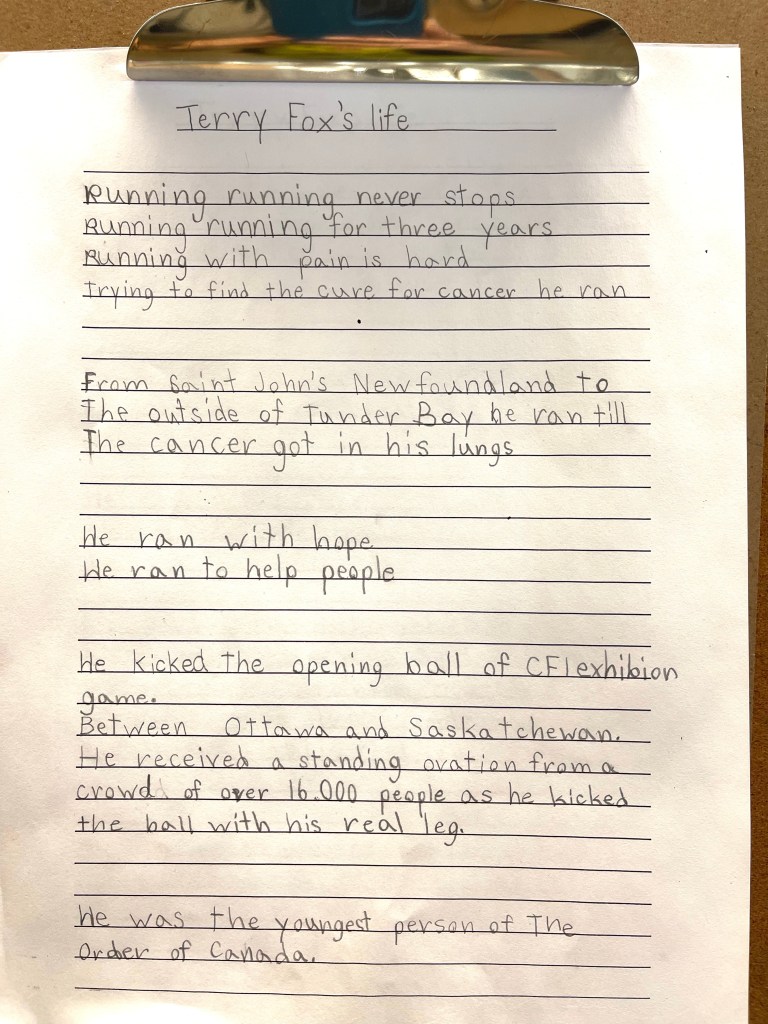 Terry Fox's life
Running running never stops
Running running for three years
Running with pain is hard
trying to find the cure for cancer he ran
From Saint John's Newfoundland to
The outside of Tunder Bay he ran till
The cancer got in his lungs
He ran with hope
He ran to help people
He kicked the opening ball of CFl exhibion
game.
Between Ottawa and Saskatchewan.
He received a standing ovation from a
crowd of over 16.000 people as he kicked
the ball with his real leg.
He was the youngest person of The
Order of Canada.